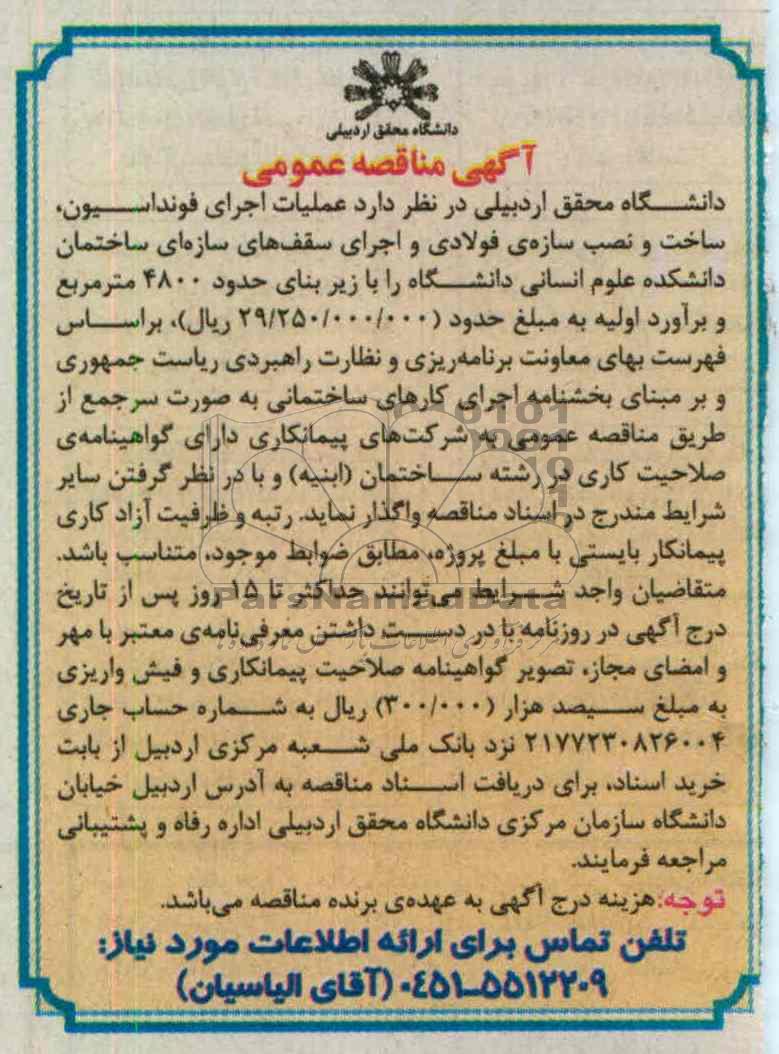 دانشگاه محقق اردبیلی
آگهی مناقصه عمومی
دانشگاه محقق اردبیلی در نظر دارد عملیات اجرای فونداسیون،
ساخت و نصب سازه‌ی فولادی و اجرای سقف‌های سازه‌ای ساختمان
دانشکده علوم انسانی دانشگاه را با زیر بنای حدود ۴۸۰۰ مترمربع
و برآورد اولیه به مبلغ حدود (۲۹/۲۵۰/۰۰۰/۰۰۰ ریال)، براساس
فهرست بهای معاونت برنامه‌ریزی و نظارت راهبردی ریاست جمهوری
و بر مبنای بخشنامه اجرای کارهای ساختمانی به صورت سرجمع از
طریق مناقصه عمومی به شرکت‌های پیمانکاری دارای گواهینامه‌ی
صلاحیت کاری در رشته ساختمان (ابنیه) و با در نظر گرفتن سایر
شرایط مندرج در اسناد مناقصه واگذار نماید. رتبه و ظرفیت آزاد کاری
پیمانکار بایستی با مبلغ پروژه، مطابق ضوابط موجود، متناسب باشد.
متقاضیان واجد شرایط می‌توانند حداکثر تا ۱۵ روز پس از تاریخ
ParsNamadData
درج آگهی در روزنامه با در دست داشتن معرفی‌نامه‌ی معتبر با مهر
و امضای مجاز، تصویر گواهینامه صلاحیت پیمانکاری و فیش واریزی
به مبلغ سیصد هزار (۳۰۰/۰۰۰) ریال به شماره حساب جاری
۲۱۷۷۲۳۰۸۲۶۰۰۴ نزد بانک ملی شعبه مرکزی اردبیل از بابت
خرید اسناد، برای دریافت اسناد مناقصه به آدرس اردبیل خیابان
دانشگاه سازمان مرکزی دانشگاه محقق اردبیلی اداره رفاه و پشتیبانی
مراجعه فرمایند.
توجه: هزینه درج آگهی به عهده‌ی برنده مناقصه می‌باشد.
تلفن تماس برای ارائه اطلاعات مورد نیاز:
۰۴۵۱-۵۵۱۲۲۰۹ (آقای الیاسیان)